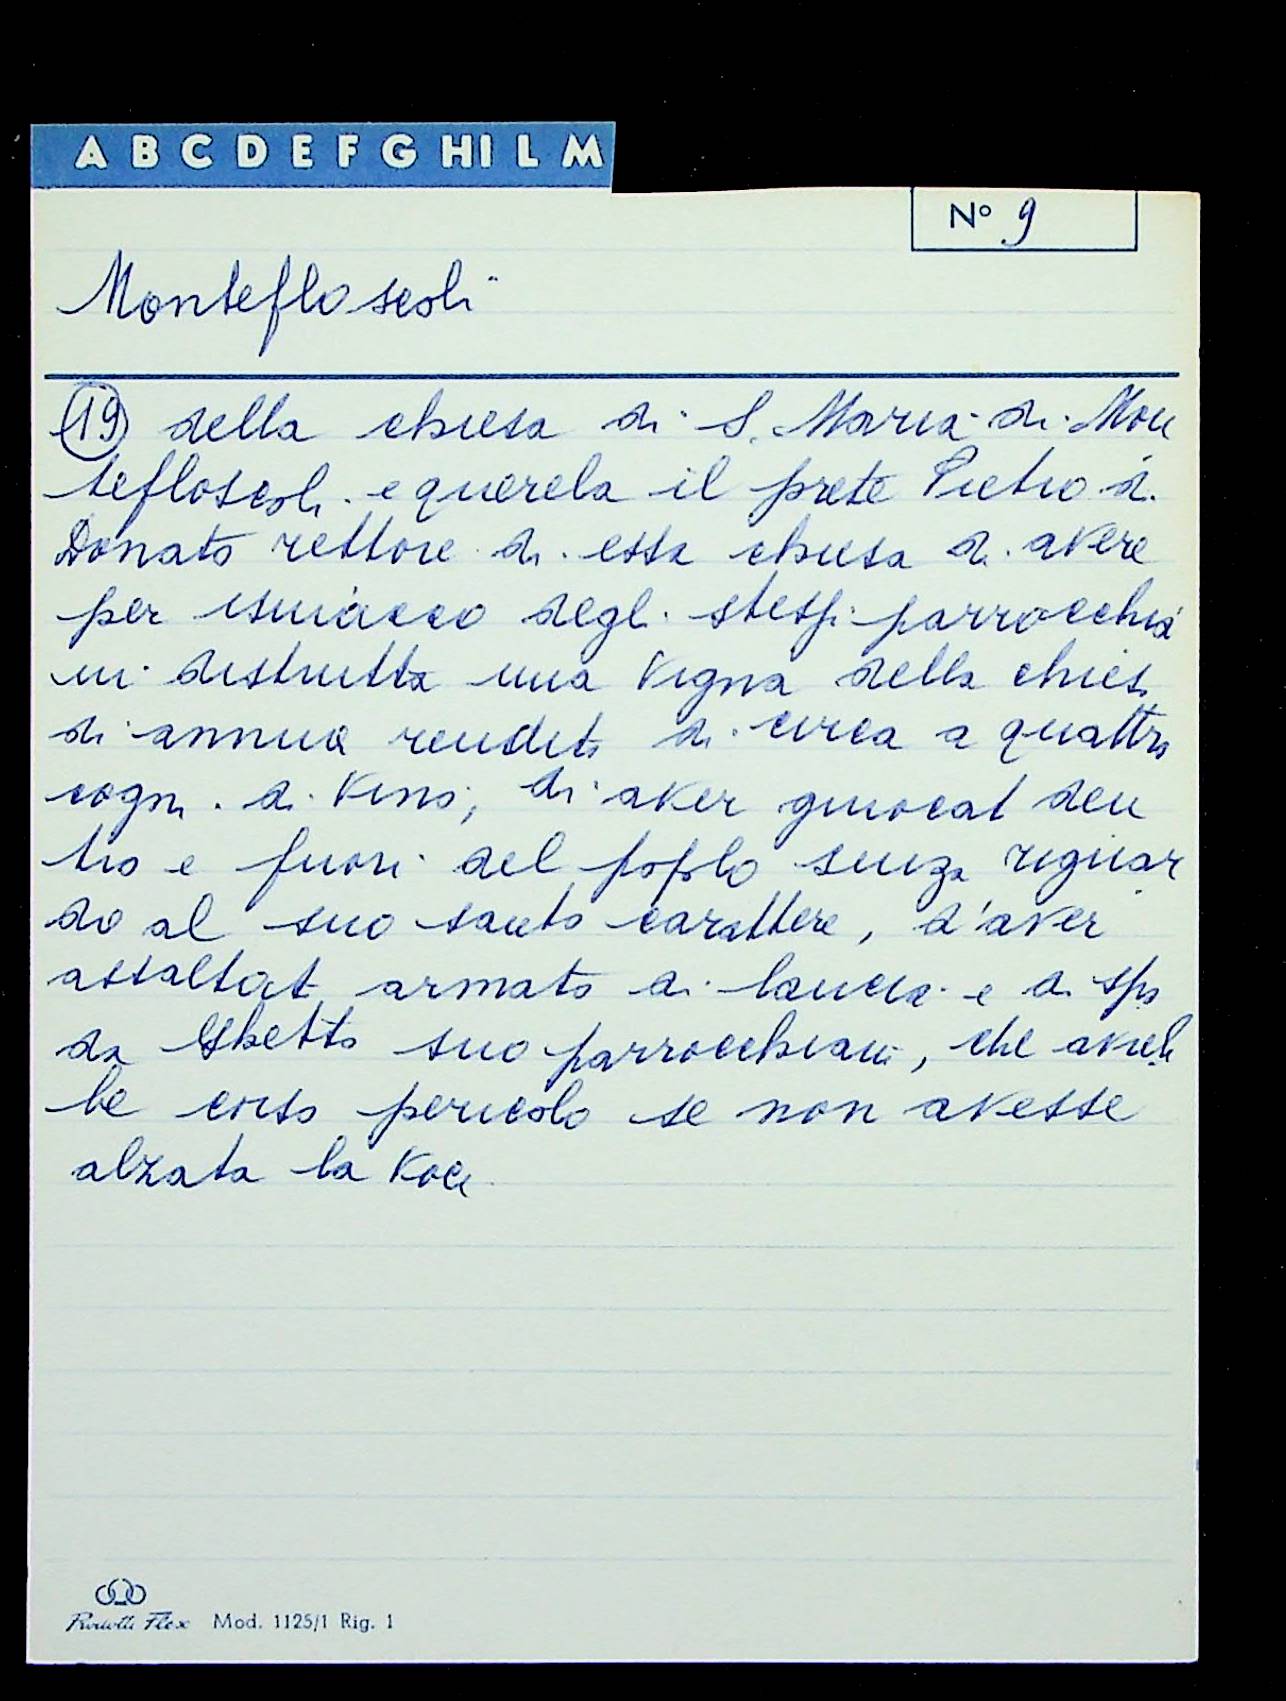 A B C D E F G HI L M
N° 9
Montefloscoli
(19) della chiesa di S. Maria di Mon
tefloscoli e querela il prete Pietro di
Donato rettore di essa chiesa di avere
per ismacco degli stessi parrocchia
ni distrutta una vigna della chiesa
di annua rendita di circa a quattro
cogni di vino, di aver giuocat den
tro e fuori del popolo senza riguar
do al suo santo carattere, d'aver
assaltat armato di lancia e di spa
da Ghetto suo parrocchiani, che avreb
be corso pericolo se non avesse
alzata la voce
Mod. 1125/1 Rig. 1